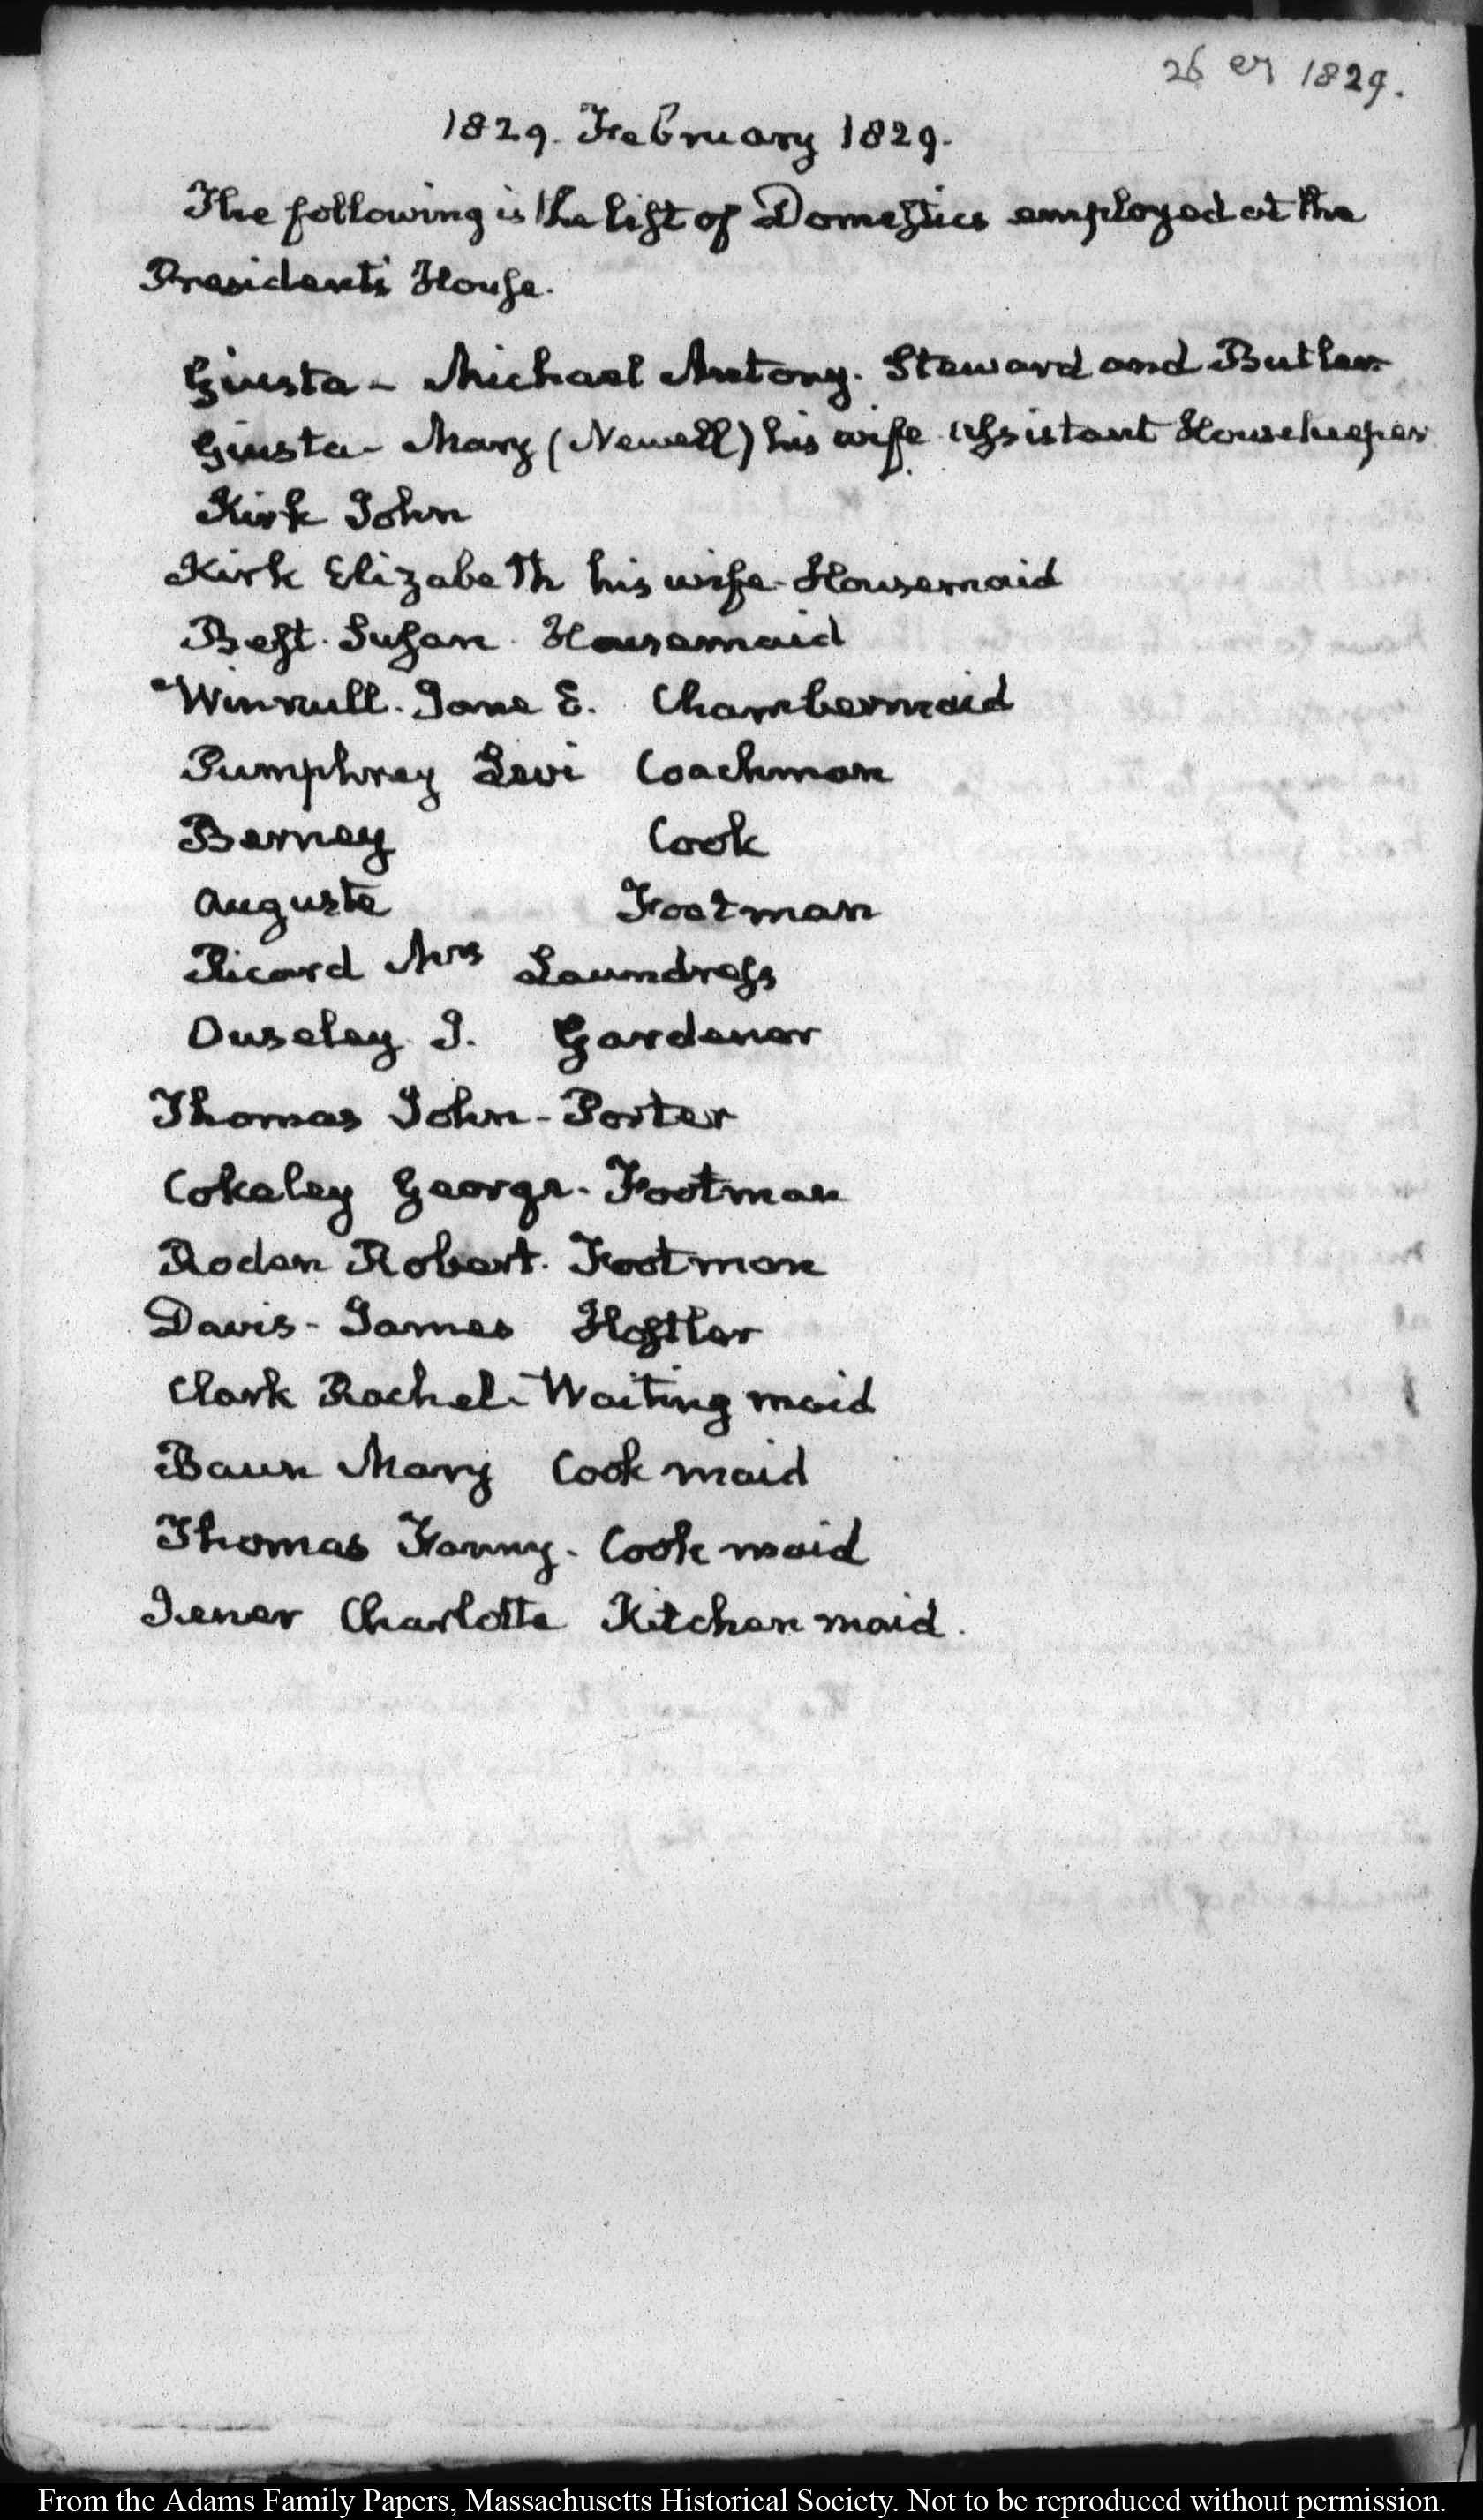 26 1829.
1829. February 1829.
The following is the list of Domestics employed at the
Presidents House.
Giusta - Michael Antony. Steward and Butler
Giusta - Mary (Newell) his wife Assistant Housekeeper
Kirk John
Kirk Elizabeth his wife - Housemaid
Best. Susan. Housemaid
Winnull. Jane E. Chambermaid
Pumphrey Levi Coachman
Berney Cook
Auguste Footman
Ricard Mrs Laundress
Ouseley J. Gardener
Thomas John - Porter
Cokeley George - Footman
Roden Robert. Footman
Davis - James Hostler
Clark Rachel - Waiting maid
Baun Mary Cook maid
Thomas Fanny. Cook maid
Charlotte Kitchen maid.
From the Adams Family Papers, Massachusetts Historical Society. Not to be reproduced without permission.